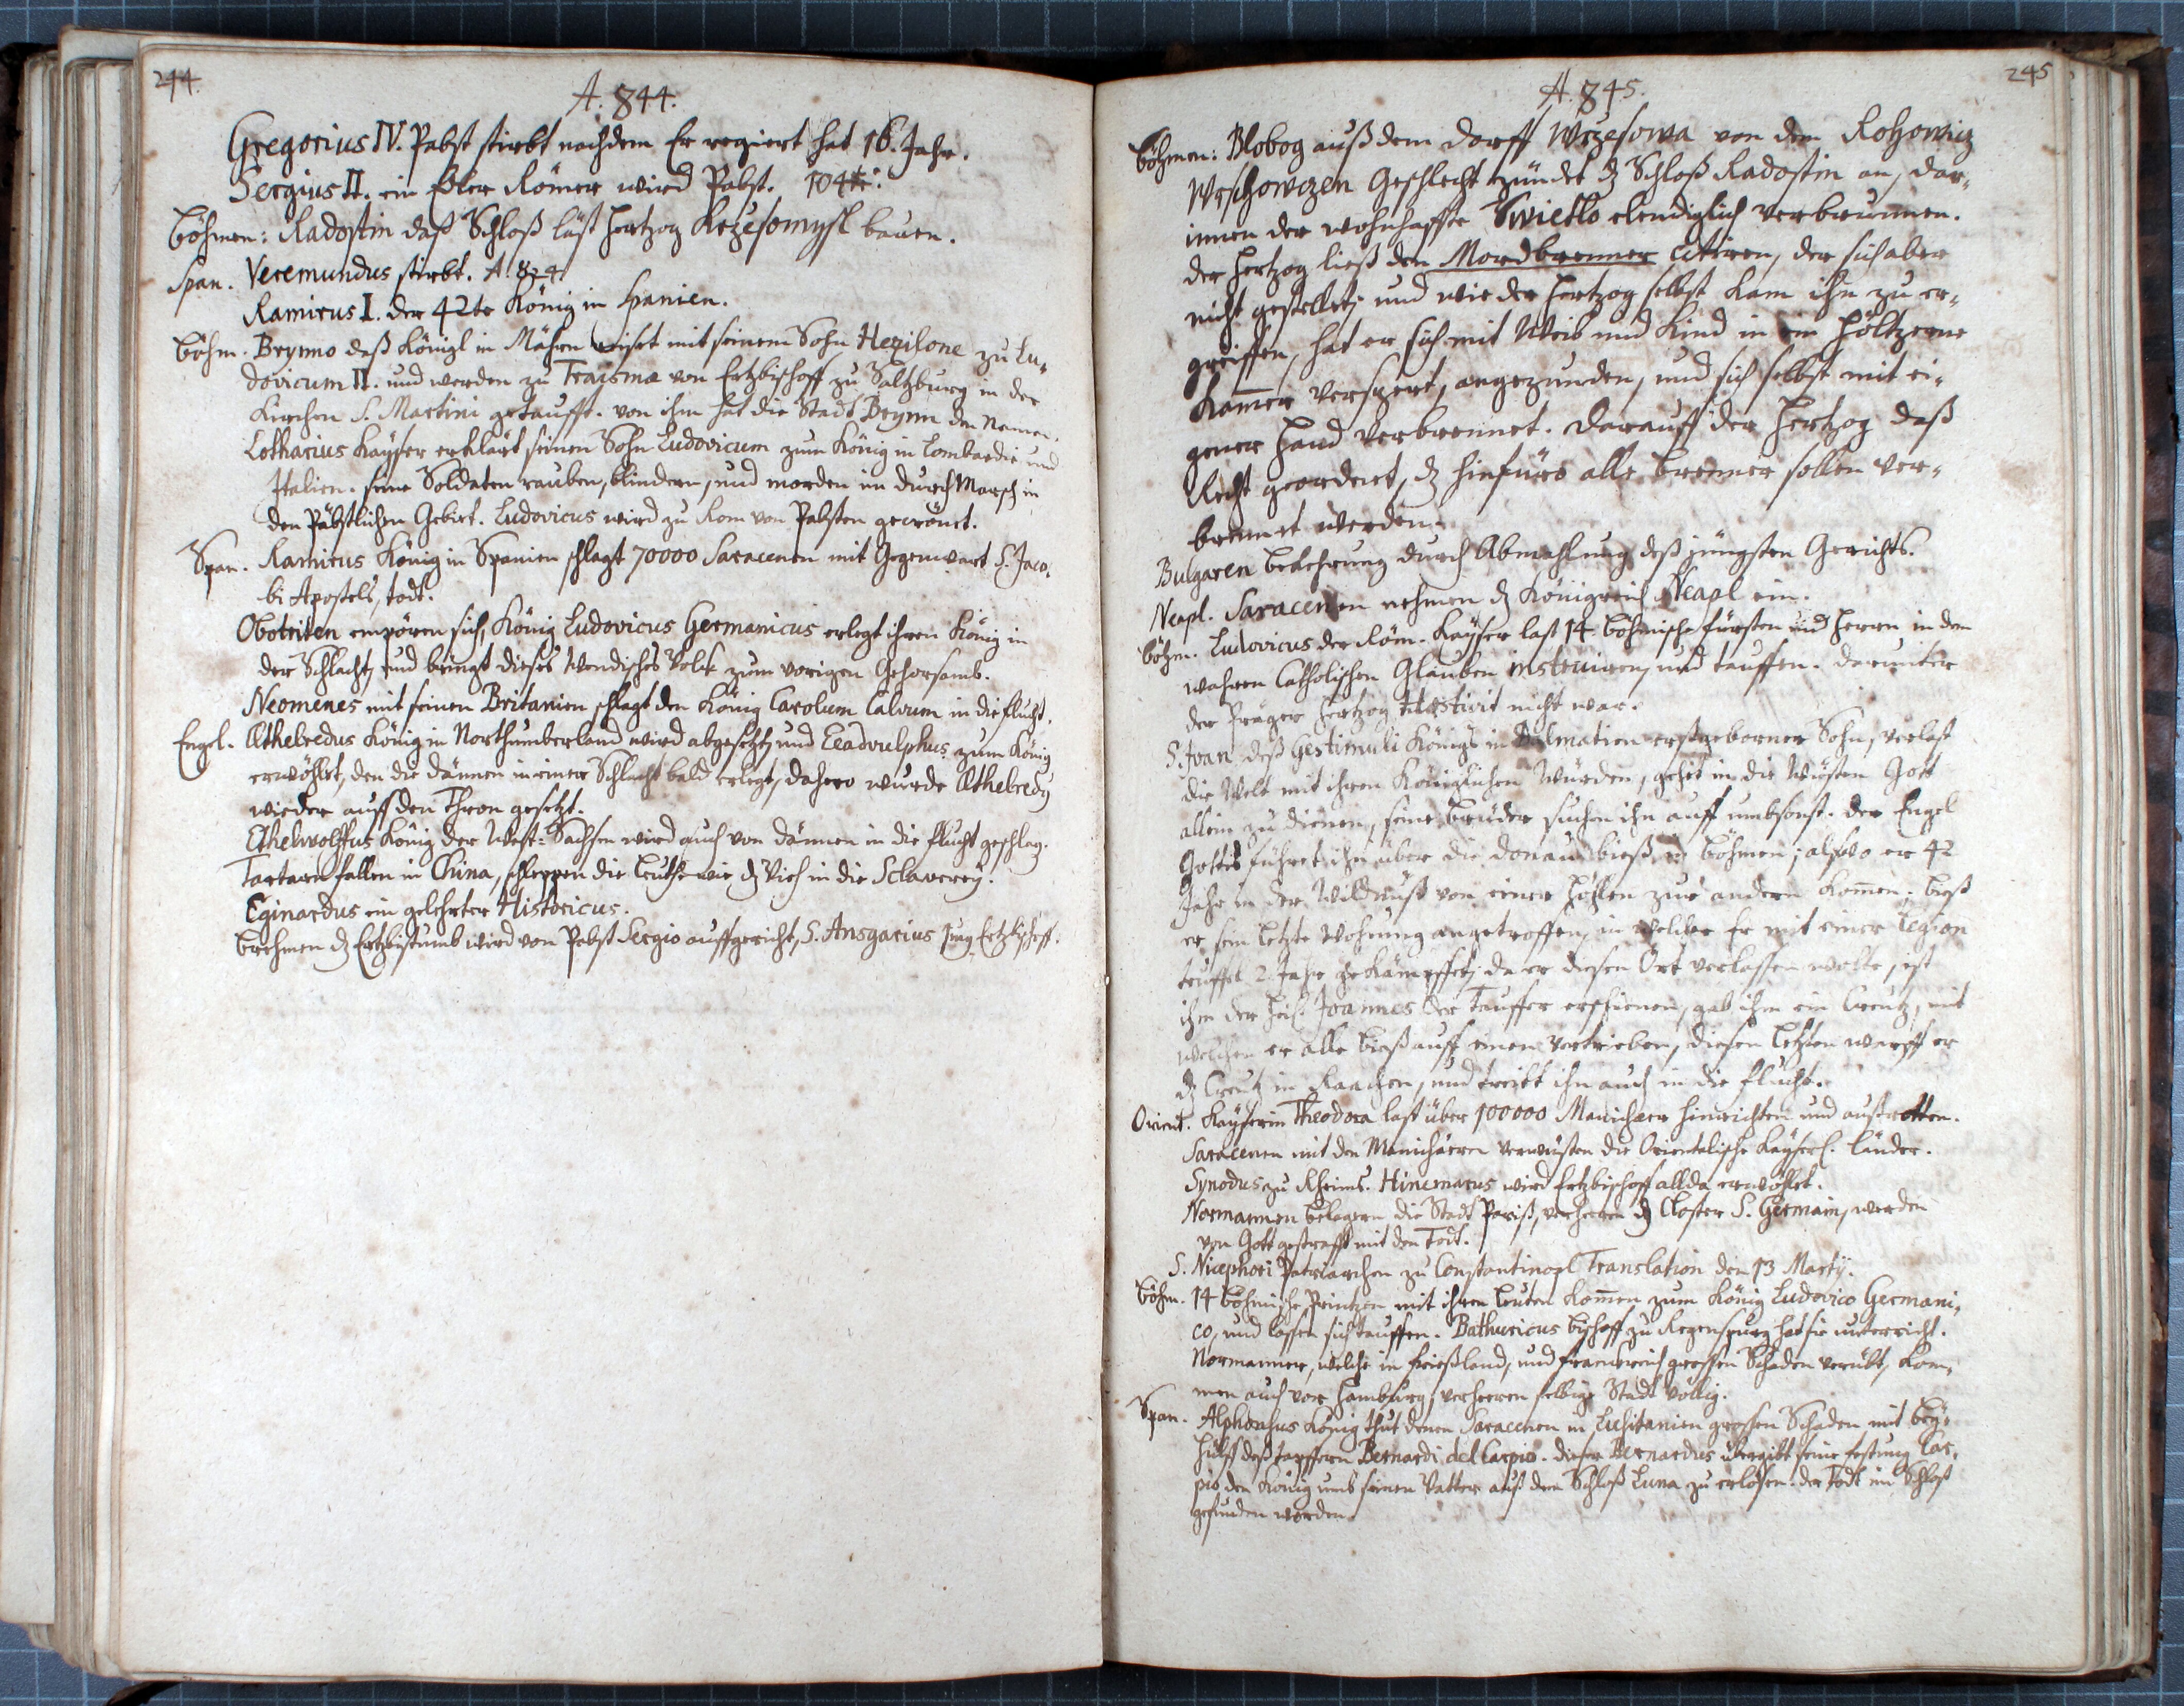 244.
A. 844.
Gregorius IV. Pabst stirbt nachdem Er regiert hat 16. Jahr.
Sergius II. ein Edler Römer wird Pabst. 104te.
Böhmen: Radostin daß Schloß läst Hertzog Krzesomysl bauen.
Span. Veremundus stirbt. A. 824.
Ramirus I. der 42te König in Spanien.
Böhm. Brynno daß Königl in Mähren reiset mit seinem Sohn Hezilone zu Lu-
dovicum II. und werden zu Traisma von Ertzbischoff zu Saltzburg in der
Kirchen S. Martini getaufft. von ihm hat die Stadt Brynn den Namen.
Lotharius Kayser erklärt seinen Sohn Ludovicum zum König in Lombardie und
Italien. seine Soldaten rauben, blindern, und morden im durch Marsch in
den Päbstlichen Gebiet. Ludovicus wird zu Rom von Pabsten gecrönet.
Span. Ramirus König in Spanien schlagt 70000 Saracenen mit Gegenwart S. Jaco-
bi Apostels, todt.
Obotriten empören sich, König Ludovicus Germanicus erlegt ihren König in
der Schlacht, und bringt dieses Wendisches Volck zum vorigen Gehorsamb.
Neomenes mit seinen Britanien schlagt den König Carolum Calvum in die flucht.
Engel. Æthelredus König in Northumberland wird abgesetzt, und Readvulphus zum König
erwöhlet, den die Dännen in einer Schlacht bald erlegt, dahero wurde Æthelredg
wieder auff den Thron gesetzt.
Ethelwolffus König der West-Sachsen wird auch von Dännen in die flucht geschlag.
Tartarn fallen in China, schleppen die Leuthe wie dz Vieh in die Sclaverey.
Eginardus ein gelehrter Historicus.
Brehmen dz Ertzbistumb wird von Pabst Sergio auffgericht, S. Ansgarius Ertzbischoff.
245
A. 845.
Böhmen: Blobog auß dem Dorff Wrzesowa von dem Rohowicz
Wrschowczen Geschlecht zündet dz Schloß Radostin an, dar-
innen der wohnhaffte Swietlo elendiglich verbrunnen.
der Hertzog ließ den Mordbrenner citiren, der sich aber
nicht gestellet, und wie der Hertzog selbst kam ihn zu er-
greiffen, hat er sich mit Weib und Kind in ein höltzerne
Kam̄er versperrt, angezunden, und sich selbst mit ei-
gener Hand verbrennet. Darauff der Hertzog daß
Recht geordnet, dz hinfüro alle brenner sollen ver-
brennet werden.
Bulgaren bekehrung durch Abmahlung deß jüngsten Gerichts.
Neapl. Saracenen nehmen dz Königreich Neapl ein.
Böhm. Ludovicus der Röm. Kayser last 14 böhmische fürsten und Herrn in dem
wahren Catholischen Glauben instruiren, und tauffen. darunter
der Präger Hertzog Hostivit nicht war.
S. Ivan deß Gestimuli Königs in Dalmatien erstgeborner Sohn, verlast
die Welt mit ihren Königlichen Würden, gehet in die Wüsten Gott
allein zu dienen, seine brüder suchen ihn auff umbsonst. der Engel
Gottes führet ihn über die Donau bieß in Böhmen; alswo er 42
Jahr in der Wildnuß von einer Höhlen zur andern kom̄en. bieß
er sein letzte Wohnung angetroffen, in welcher Er mit einer Legion
teuffel 2. Jahr gekämpffet, da er diesen Ort verlassen wolte, ist
ihm der Heil. Joannes der Tauffer erschienen, gab ihm ein Creutz, mit
welchen er alle bieß auff einen vertrieben, diesen letzten warff er
dz Creutz in Raachen, und treibt ihn auch in die flucht.
Orient. Kayserin Theodora last über 100000 Manichæer hinrichten und außrotten.
Saracenen mit den Manichäern verwüsten die Orientalische Kayserl. Länder.
Synodus zu Rheims. Hincmarus wird Ertzbischoff allda erwöhlet.
Normannen belagern die Stadt Pariß, verheeren dz Closter S. Germain, werden
von Gott gestrafft mit dem Todt.
S. Nicephori Patriarchen zu Constantinopl Translation den 13 Martÿ.
Böhm. 14 böhmische Printzen mit ihren Leuten kom̄en zum König Ludovico Germani-
co, und lassen sich tauffen. Bathuricus bischoff zu Regenspurg hat sie unterricht.
Normanner, welche in Frießland, und Franckreich grossen Schaden verübt, kom-
men auch vor Hamburg, verheeren selbige Stadt völlig.
Span. Alphonsus König thut denen Saracenen in Lusitanien grossen Schaden mit bey-
hülff deß tapffern Bernardi del Carpio. dieser Bernardus übergibt seine festung Car-
pio dem König umb seinen Vatter auß dem Schloß Luna zu erlösen. der Todt im Schloß
gefunden worden.